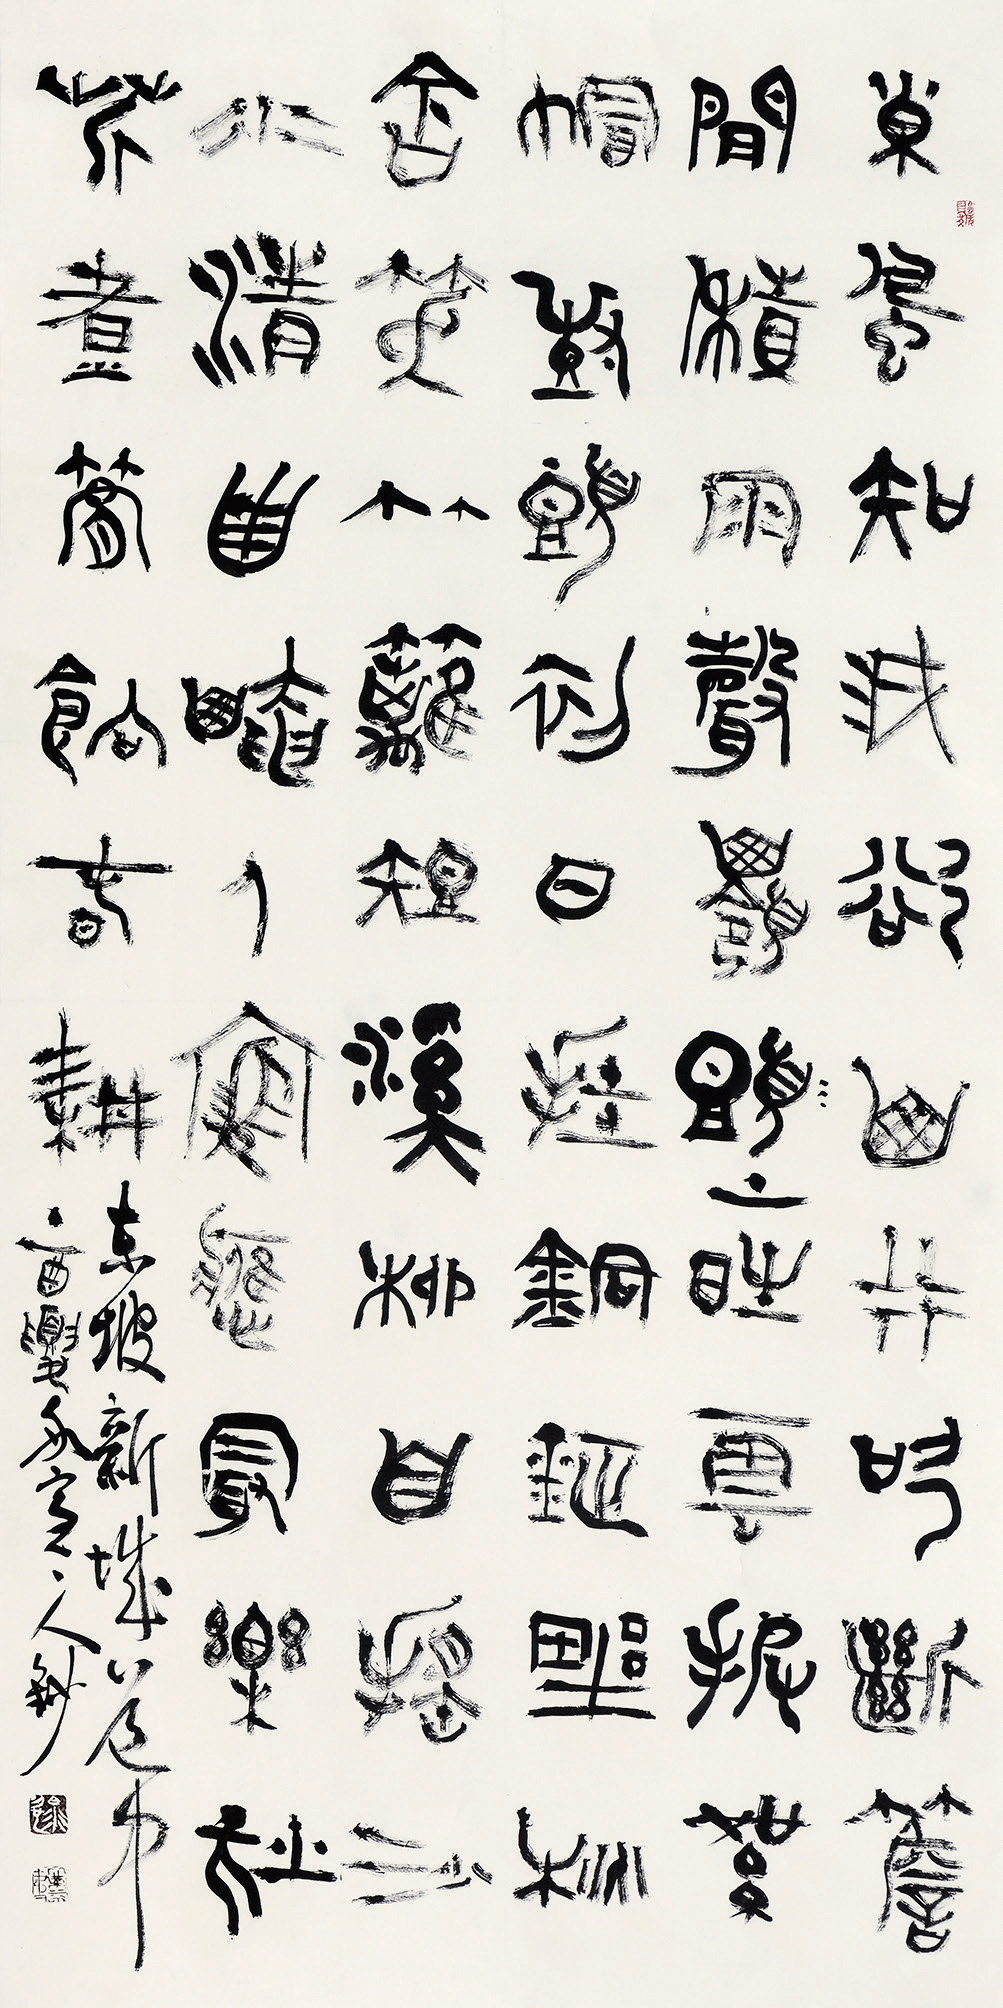 東風知我欲山行吹斷簷
間積雨聲嶺頭上晴雲披絮
帽樹頭初日掛銅鉦野桃
含笑竹籬短溪柳自搖沙
水清西崦人家應最樂煮
芹燒筍餉春耕
东坡新城道中